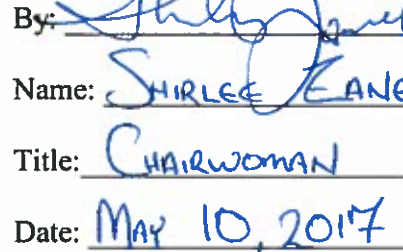 By:
Name: SHIRLEE ZANE
Title: CHAIRWOMAN
Date: MAY 10, 2017